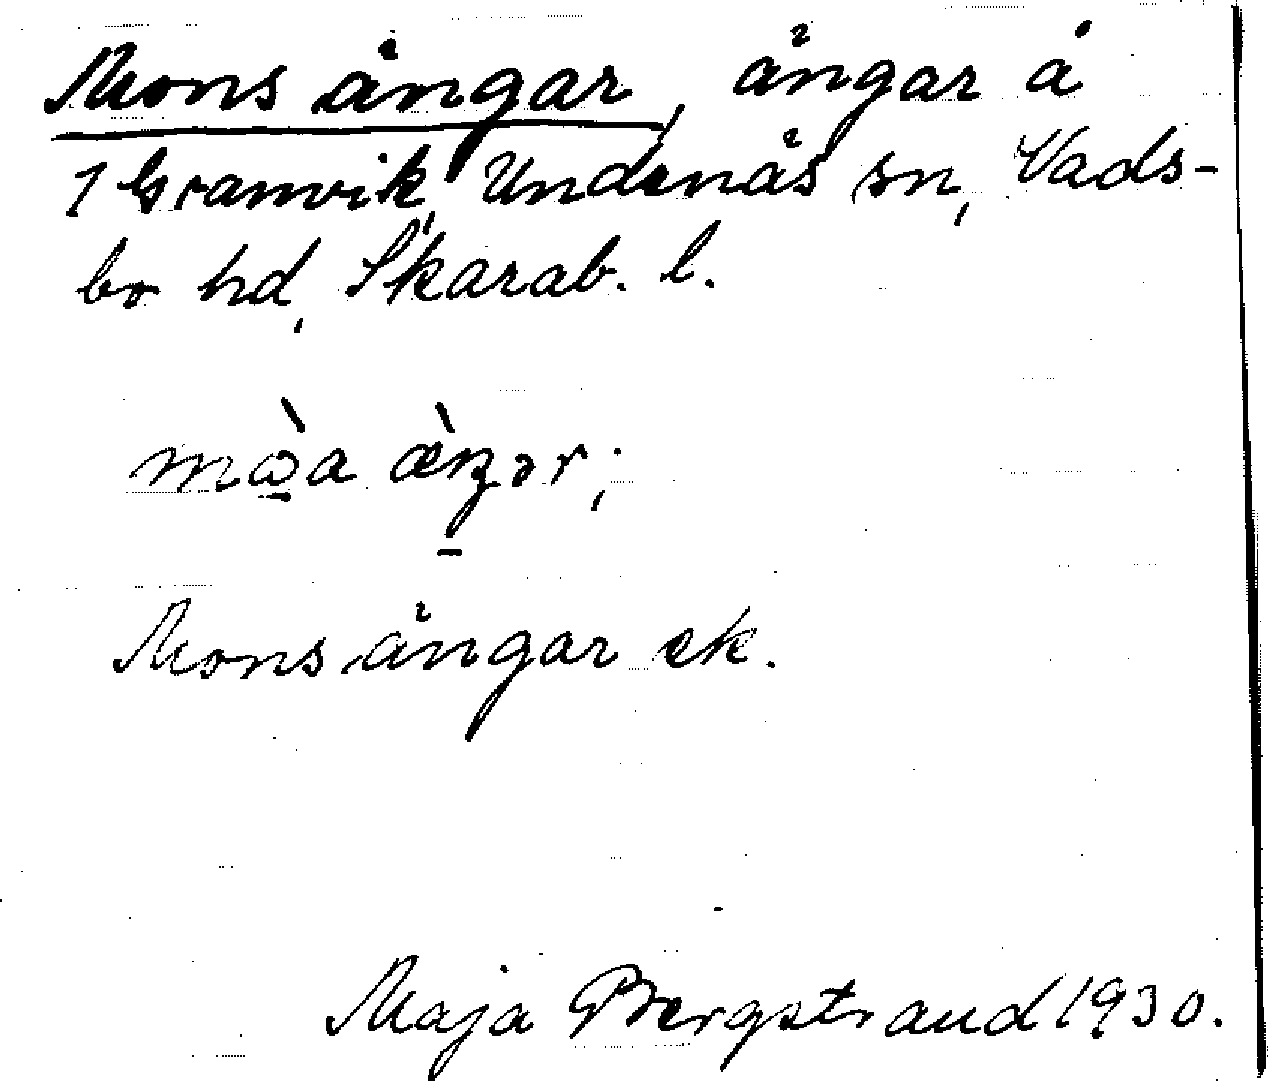 Mons ängar, ängar å
1 Granvik, Undenäs sn, Vads-
bo hd, Skarab. l.
mɷ̀a æ̀ŋər;
Mons ängar ek.
Maja Bergstrand 1930.